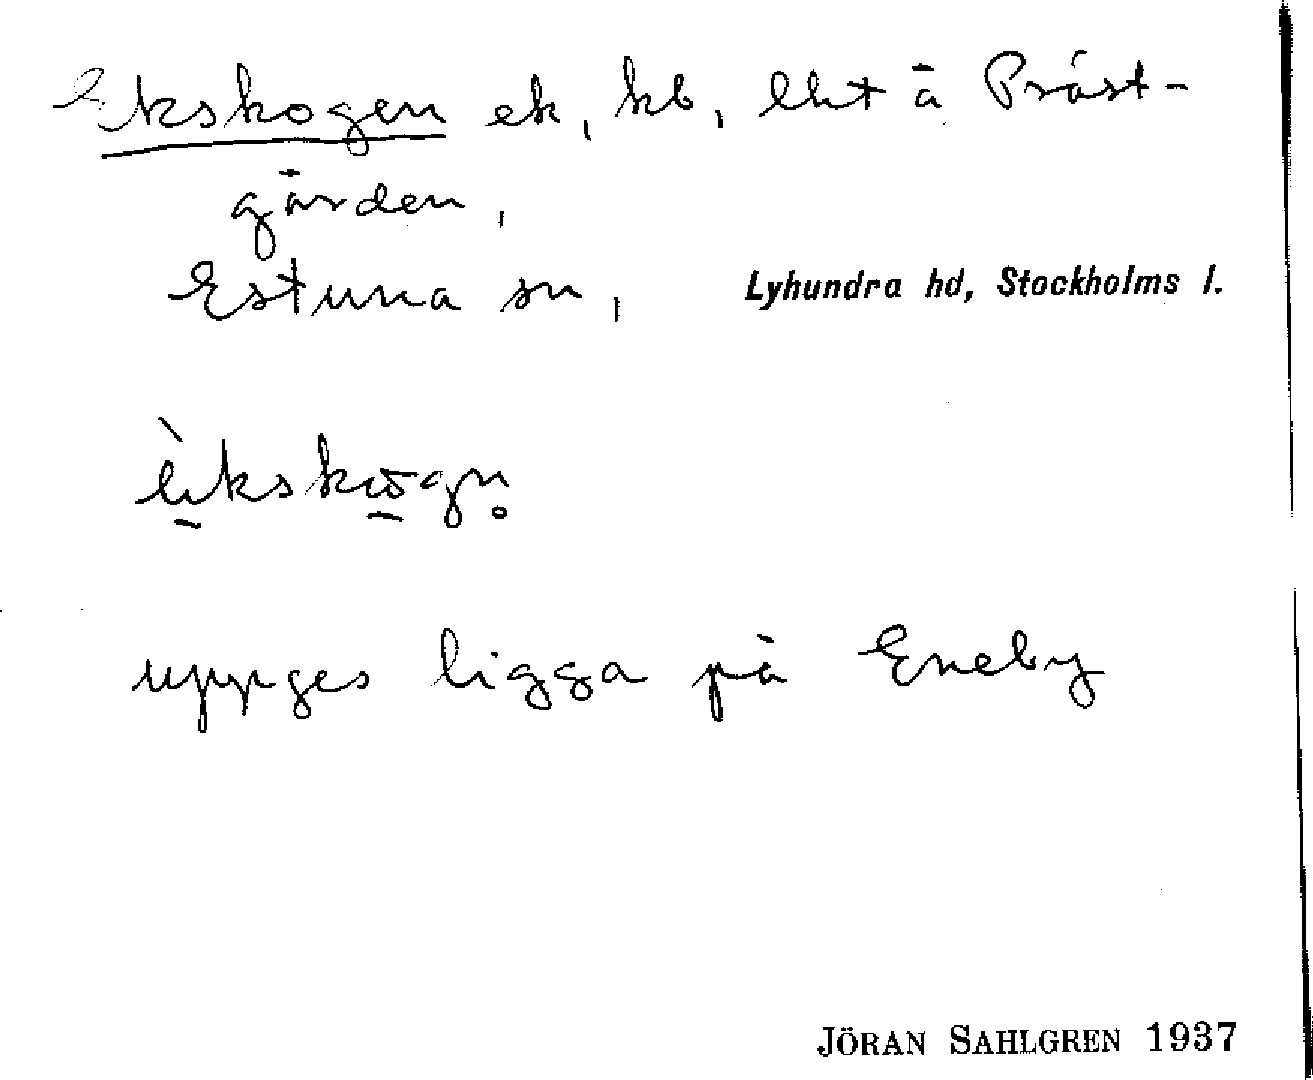 Ekskogen ek, kb, lht å Präst-
gården,
Estuna sn, Lyhundra hd, Stockholms l.
uppges ligga på Eneby
JÖRAN SAHLGREN 1937